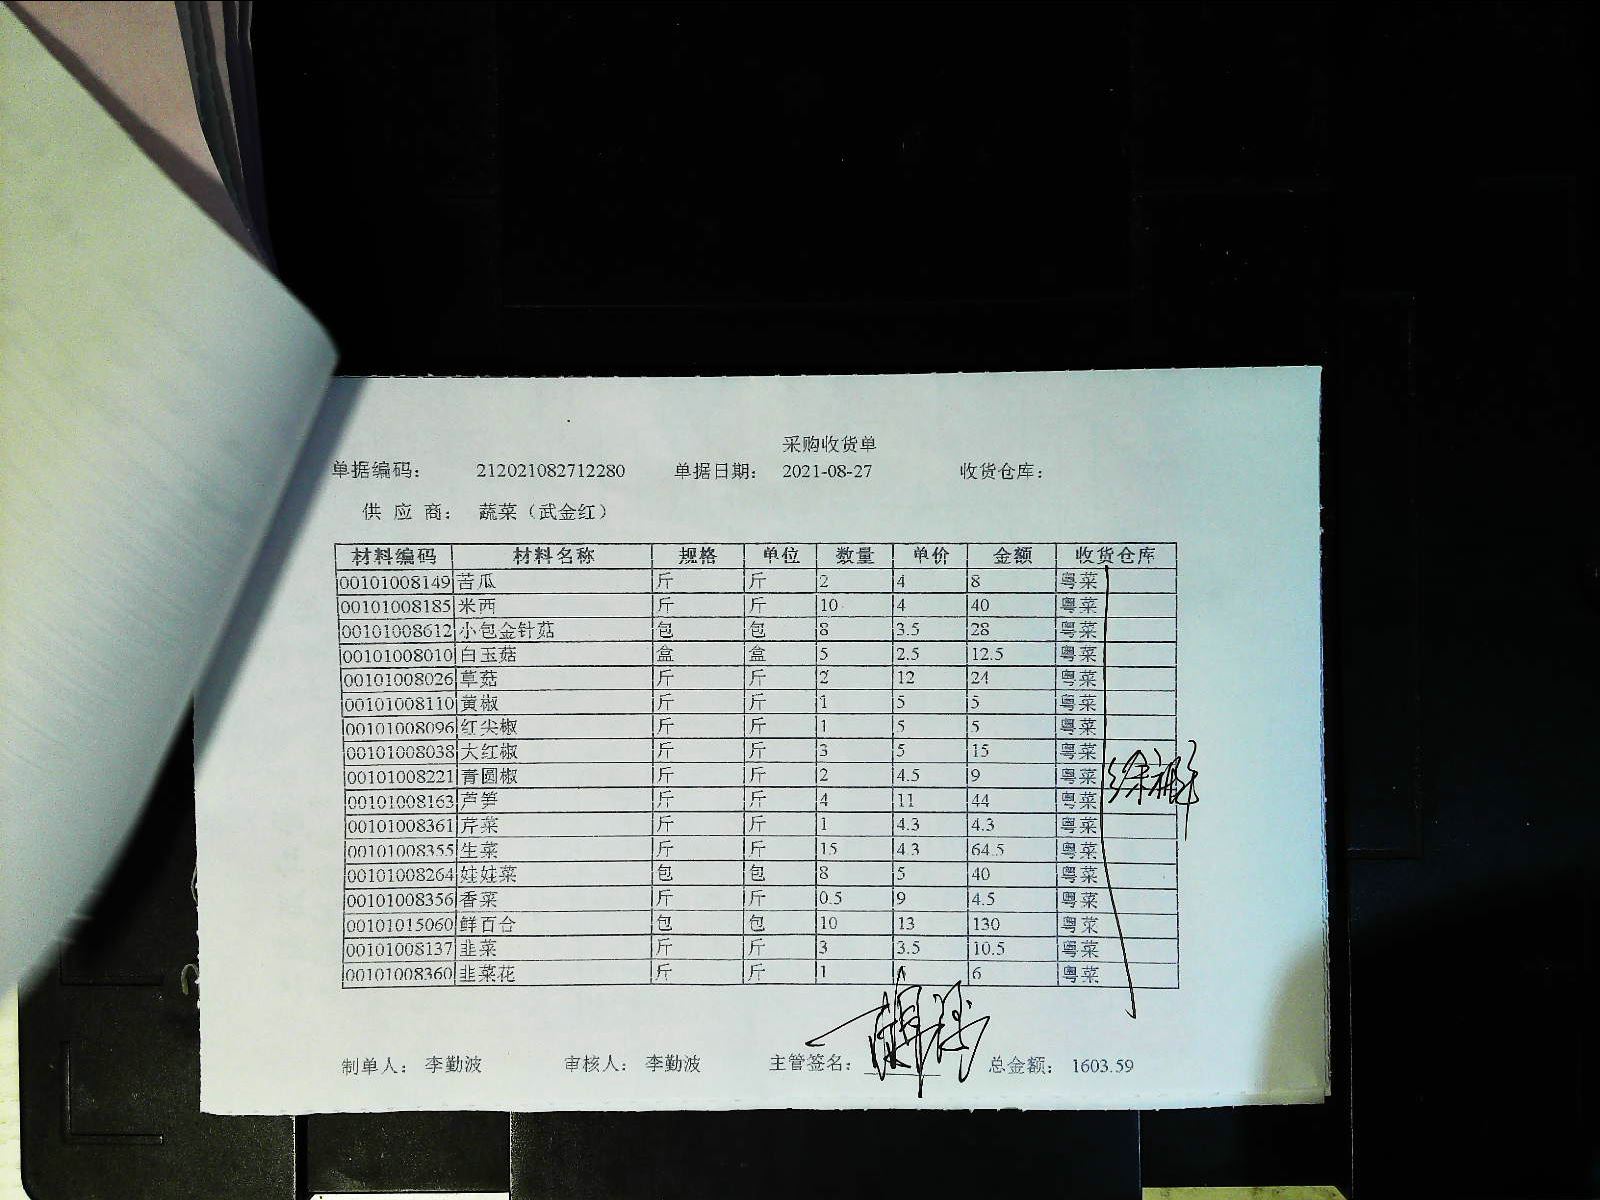 采购收货单
单据编码： 212021082712280 单据日期： 2021-08-27 收货仓库：
供 应 商： 蔬菜（武金红）
材料编码 材料名称 规格 单位 数量 单价 金额 收货仓库
00101008149 苦瓜 斤 斤 2 4 8 粤菜
00101008185 米西 斤 斤 10 4 40 粤菜
00101008612 小包金针菇 包 包 8 3.5 28 粤菜
00101008010 白玉菇 盒 盒 5 2.5 12.5 粤菜
00101008026 草菇 斤 斤 2 12 24 粤菜
00101008110 黄椒 斤 斤 1 5 5 粤菜
00101008096 红尖椒 斤 斤 1 5 5 粤菜
00101008038 大红椒 斤 斤 3 5 15 粤菜
00101008221 青圆椒 斤 斤 2 4.5 9 粤菜
00101008163 芦笋 斤 斤 4 11 44 粤菜
00101008361 芹菜 斤 斤 1 4.3 4.3 粤菜
00101008355 生菜 斤 斤 15 4.3 64.5 粤菜
00101008264 娃娃菜 包 包 8 5 40 粤菜
00101008356 香菜 斤 斤 0.5 9 4.5 粤菜
00101015060 鲜百合 包 包 10 13 130 粤菜
00101008137 韭菜 斤 斤 3 3.5 10.5 粤菜
00101008360 韭菜花 斤 斤 1 6 粤菜
制单人： 李勤波 审核人： 李勤波 主管签名： 总金额： 1603.59